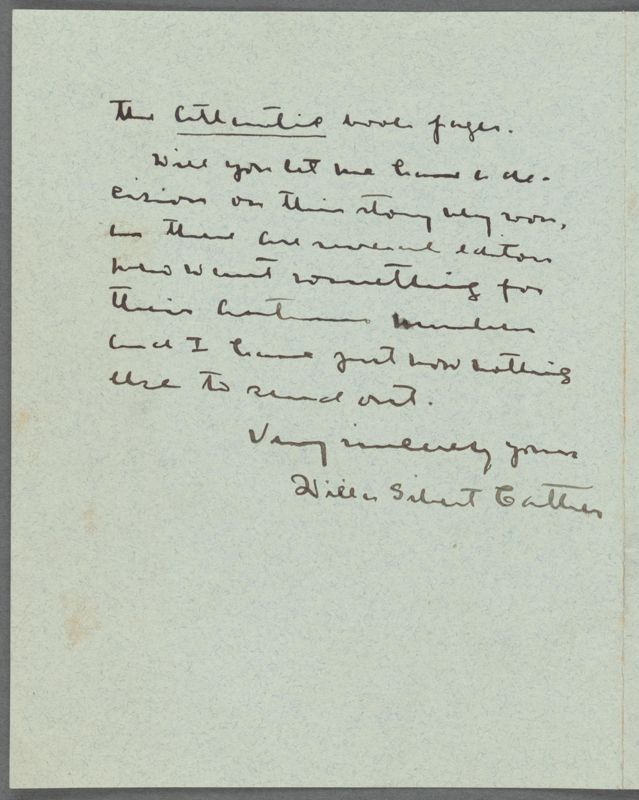 The Atlantic book pages.
Will you let me have a de-
cision on this story very soon,
as there are several editors
who want something for
their Autumn numbers
and I have just now nothing
else to send out.
Very sincerely yours
Willa Sibert Cather